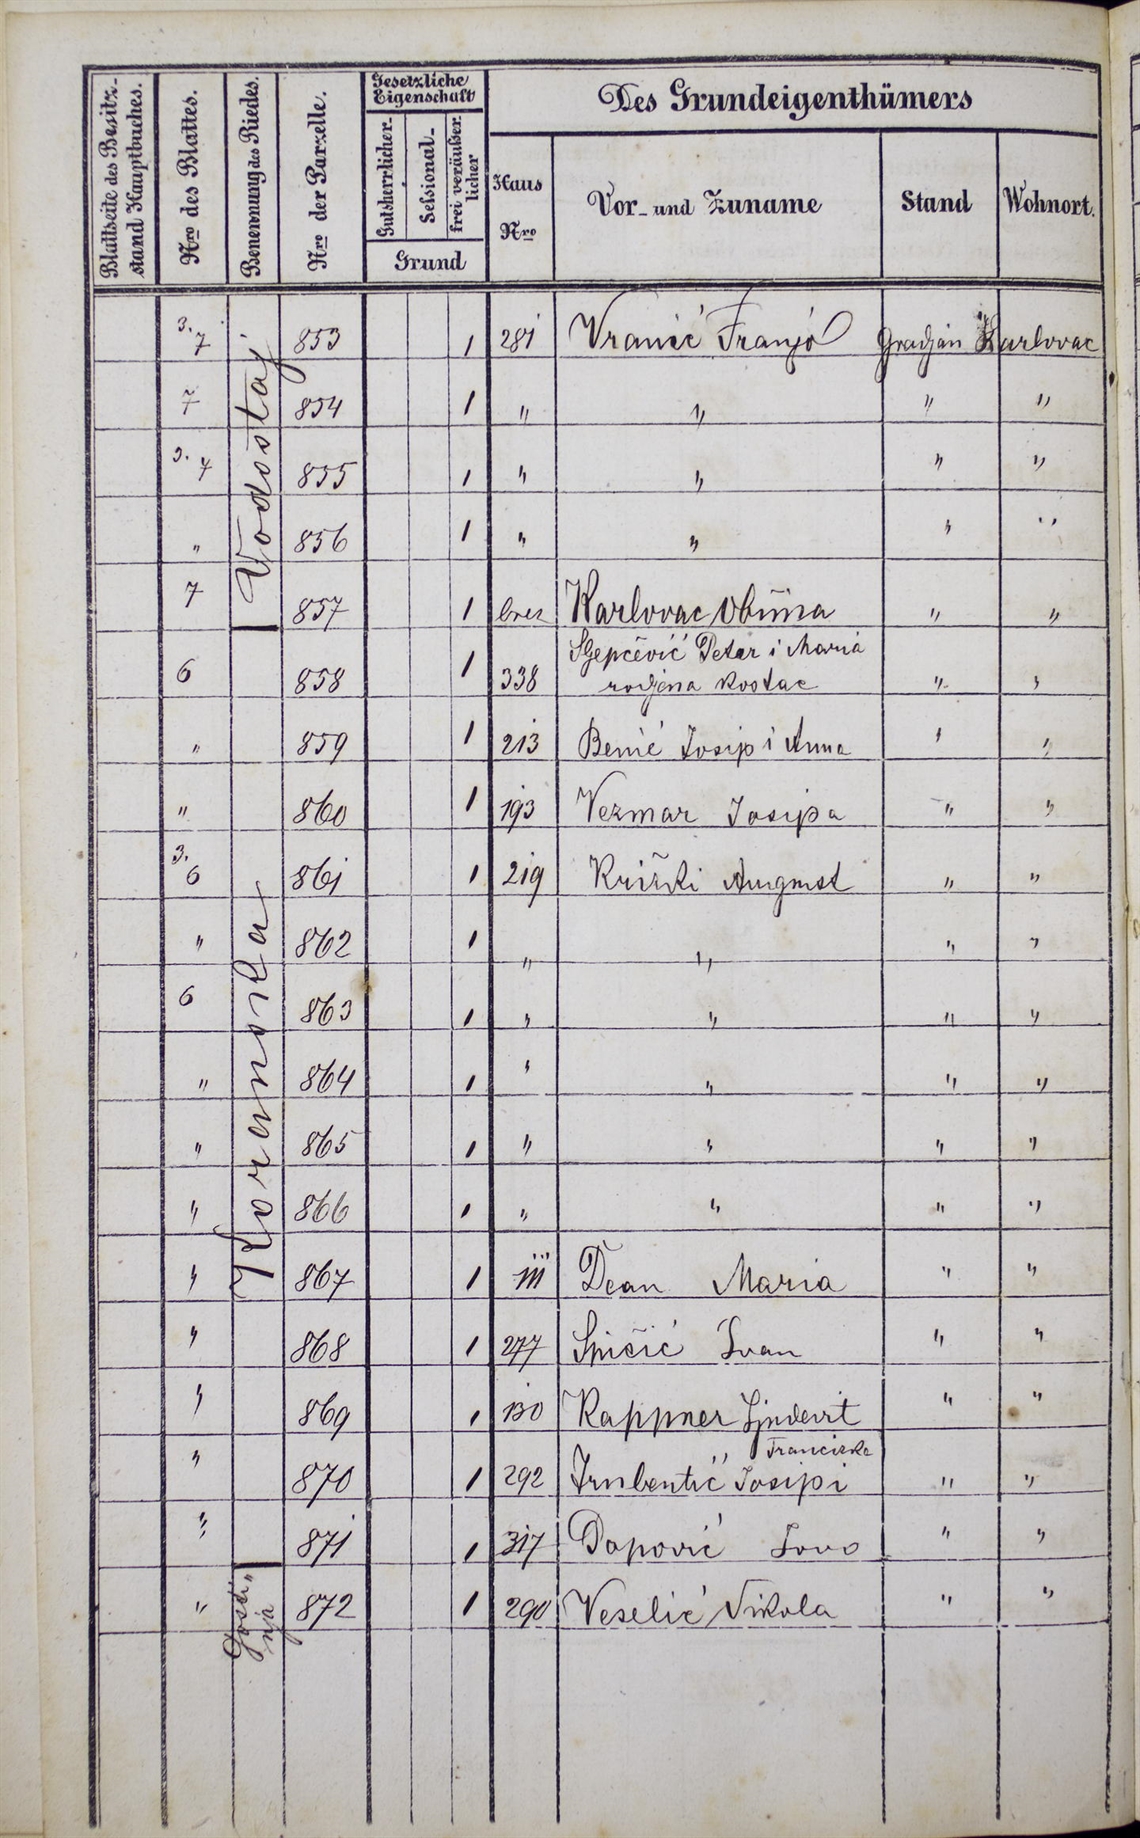 Blattseite des Besitz-
stand Hauptbuches.
Nro des Blattes.
Benennung des Riedes.
Nro der Parzelle.
Gesetzliche
Eigenschaft
Gutsherrlicher-
Sessional-
frei veräußer-
licher
Grund
Des Grundeigenthümers
Haus
Nro
Vor- und Zuname
Stand
Wohnort.
Vodostaj
3. 7 853 1 281 Vranić Franjo Gradjan Karlovac
7 854 1 " " " "
3. 7 855 1 " " " "
" 856 1 " " " "
7 857 1 brez Karlovac Obćina " "
6 858 1 338 Stjepčević Petar i Maria
rodjena Kostac " "
" 859 1 213 Benić Josip i Anna " "
" 860 1 193 Vezmar Josipa " "
Koranska
3. 6 861 1 219 Križki August " "
" 862 1 " " " "
6 863 1 " " " "
" 864 1 " " " "
" 865 1 " " " "
" 866 1 " " " "
" 867 1 111 Dean Maria " "
" 868 1 277 Spičić Ivan " "
" 869 1 130 Kappner Ljudevit " "
Franciska
" 870 1 292 Trubentić Josip i " "
" 871 1 317 Dapović Jovo " "
Gosti„
nja
" 872 1 290 Veselić Nikola " "